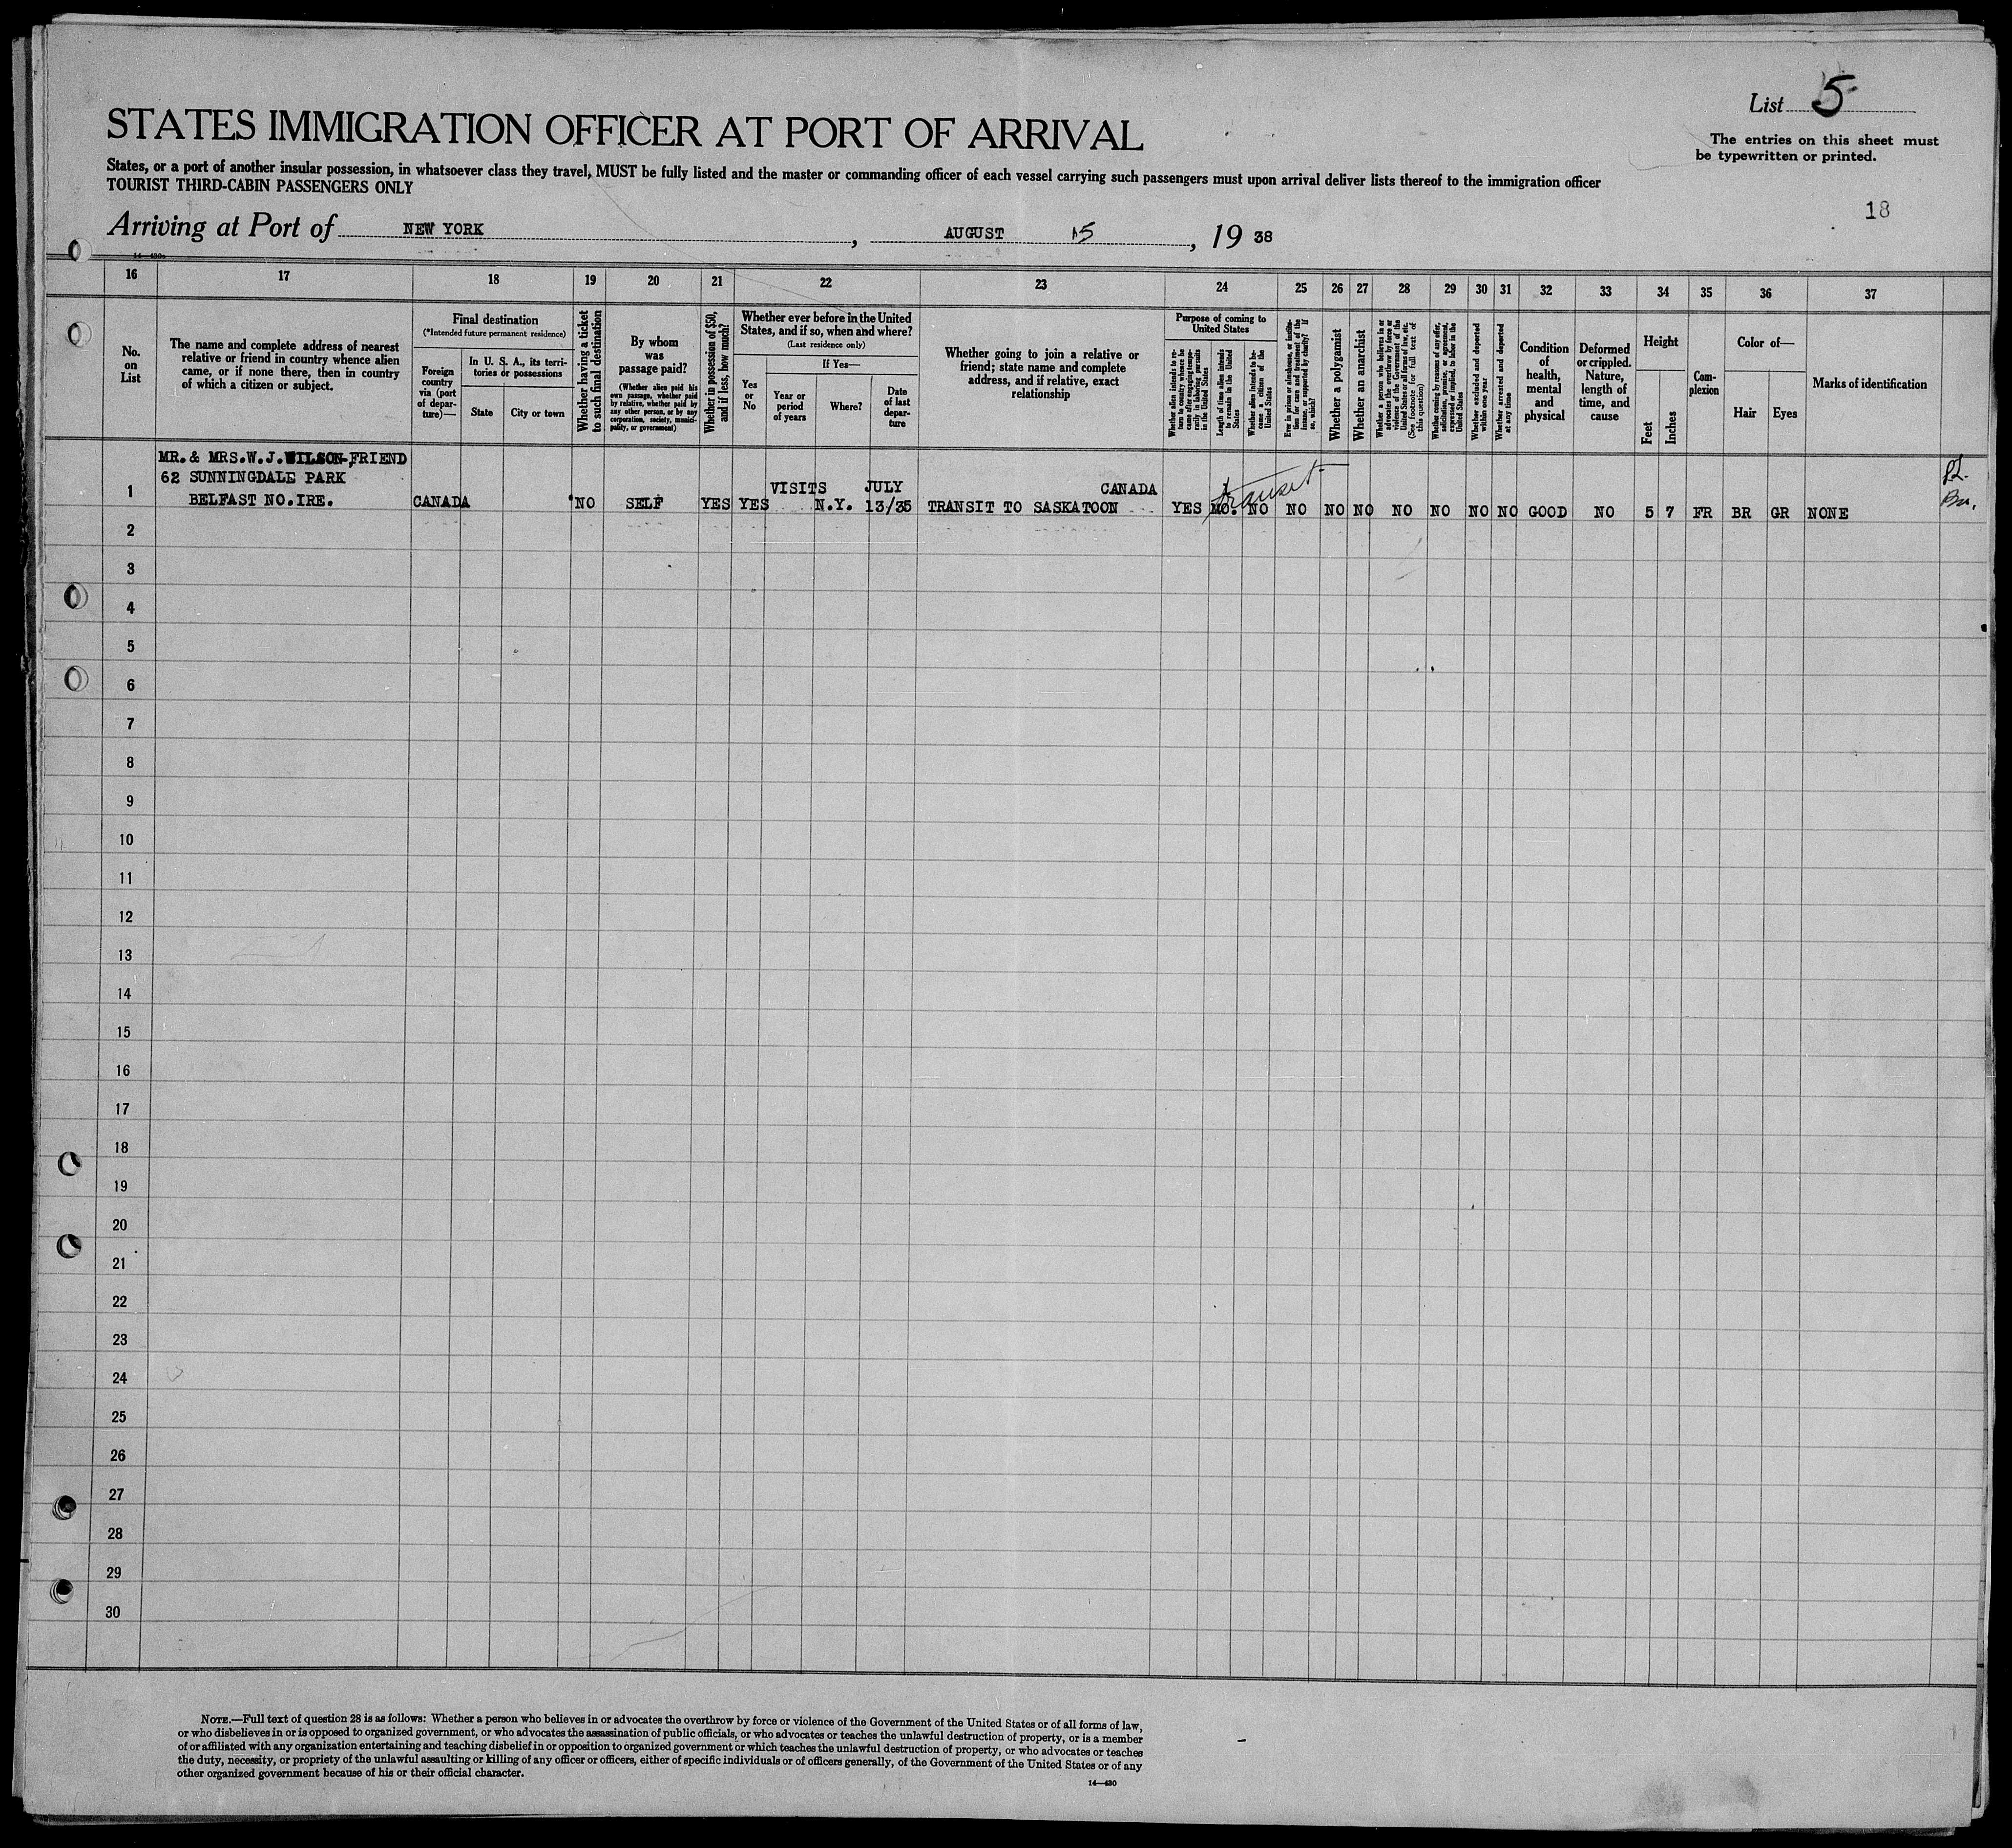 List 5
STATES IMMIGRATION OFFICER AT PORT OF ARRIVAL
The entries on this sheet must
be typewritten or printed.
States, or a port of another insular possession, in whatsoever class they travel, MUST be fully listed and the master or commanding officer of each vessel carrying such passengers must upon arrival deliver lists thereof to the immigration officer
TOURIST THIRD-CABIN PASSENGERS ONLY
18
Arriving at Port of NEW YORK, AUGUST 15, 19 38
14—430a
16 17 18 19 20 21 22 23 24 25 26 27 28 29 30 31 32 33 34 35 36 37
No.
on
List
The name and complete address of nearest
relative or friend in country whence alien
came, or if none there, then in country
of which a citizen or subject.
Final destination
(*Intended future permanent residence)
Foreign
country
via (port
of depar-
ture)—
In U. S. A., its terri-
tories or possessions
State
City or town
Whether having a ticket
to such final destination
By whom
was
passage paid?
(Whether alien paid his
own passage, whether paid
by relative, whether paid by
any other person, or by any
corporation, society, munici-
pality, or government)
Whether in possession of $50,
and if less, how much?
Whether ever before in the United
States, and if so, when and where?
(Last residence only)
Yes
or
No
If Yes—
Year or
period
of years
Where?
Date
of last
depar-
ture
Whether going to join a relative or
friend; state name and complete
address, and if relative, exact
relationship
Purpose of coming to
United States
Whether alien intends to re-
turn to country whence he
came after engaging tempo-
rarily in laboring pursuits
in the United States
Length of time alien intends
to remain in the United
States
Whether alien intends to be-
come a citizen of the
United States
Ever in prison or almshouse, or institu-
tion for care and treatment of the
insane, or supported by charity? If
so, which?
Whether a polygamist
Whether an anarchist
Whether a person who believes in or
advocates the overthrow by force or
violence of the Government of the
United States or all forms of law, etc.
(See footnote for full text of
this question)
Whether coming by reasons of any offer,
solicitation, promise, or agreement,
expressed or implied, to labor in the
United States
Whether excluded and deported
within one year
Whether arrested and deported
at any time
Condition
of
health,
mental
and
physical
Deformed
or crippled.
Nature,
length of
time, and
cause
Height
Feet
Inches
Com-
plexion
Color of—
Hair
Eyes
Marks of identification
MR. & MRS.W.J.WILSON-FRIEND
62 SUNNINGDALE PARK
VISITS JULY CANADA transit
1 BELFAST NO.IRE. CANADA NO SELF YES YES N.Y. 13/35 TRANSIT TO SASKATOON YES MO. NO NO NO NO NO NO NO NO GOOD NO 5 7 FR BR GR NONE
2
3
4
5
6
7
8
9
10
11
12
13
14
15
16
17
18
19
20
21
22
23
24
25
26
27
28
29
30
NOTE.—Full text of question 28 is as follows: Whether a person who believes in or advocates the overthrow by force or violence of the Government of the United States or of all forms of law,
or who disbelieves in or is opposed to organized government, or who advocates the assassination of public officials, or who advocates or teaches the unlawful destruction of property, or is a member
of or affiliated with any organization entertaining and teaching disbelief in or opposition to organized government or which teaches the unlawful destruction of property, or who advocates or teaches
the duty, necessity, or propriety of the unlawful assaulting or killing of any officer or officers, either of specific individuals or of officers generally, of the Government of the United States or of any
other organized government because of his or their official character.
14—430